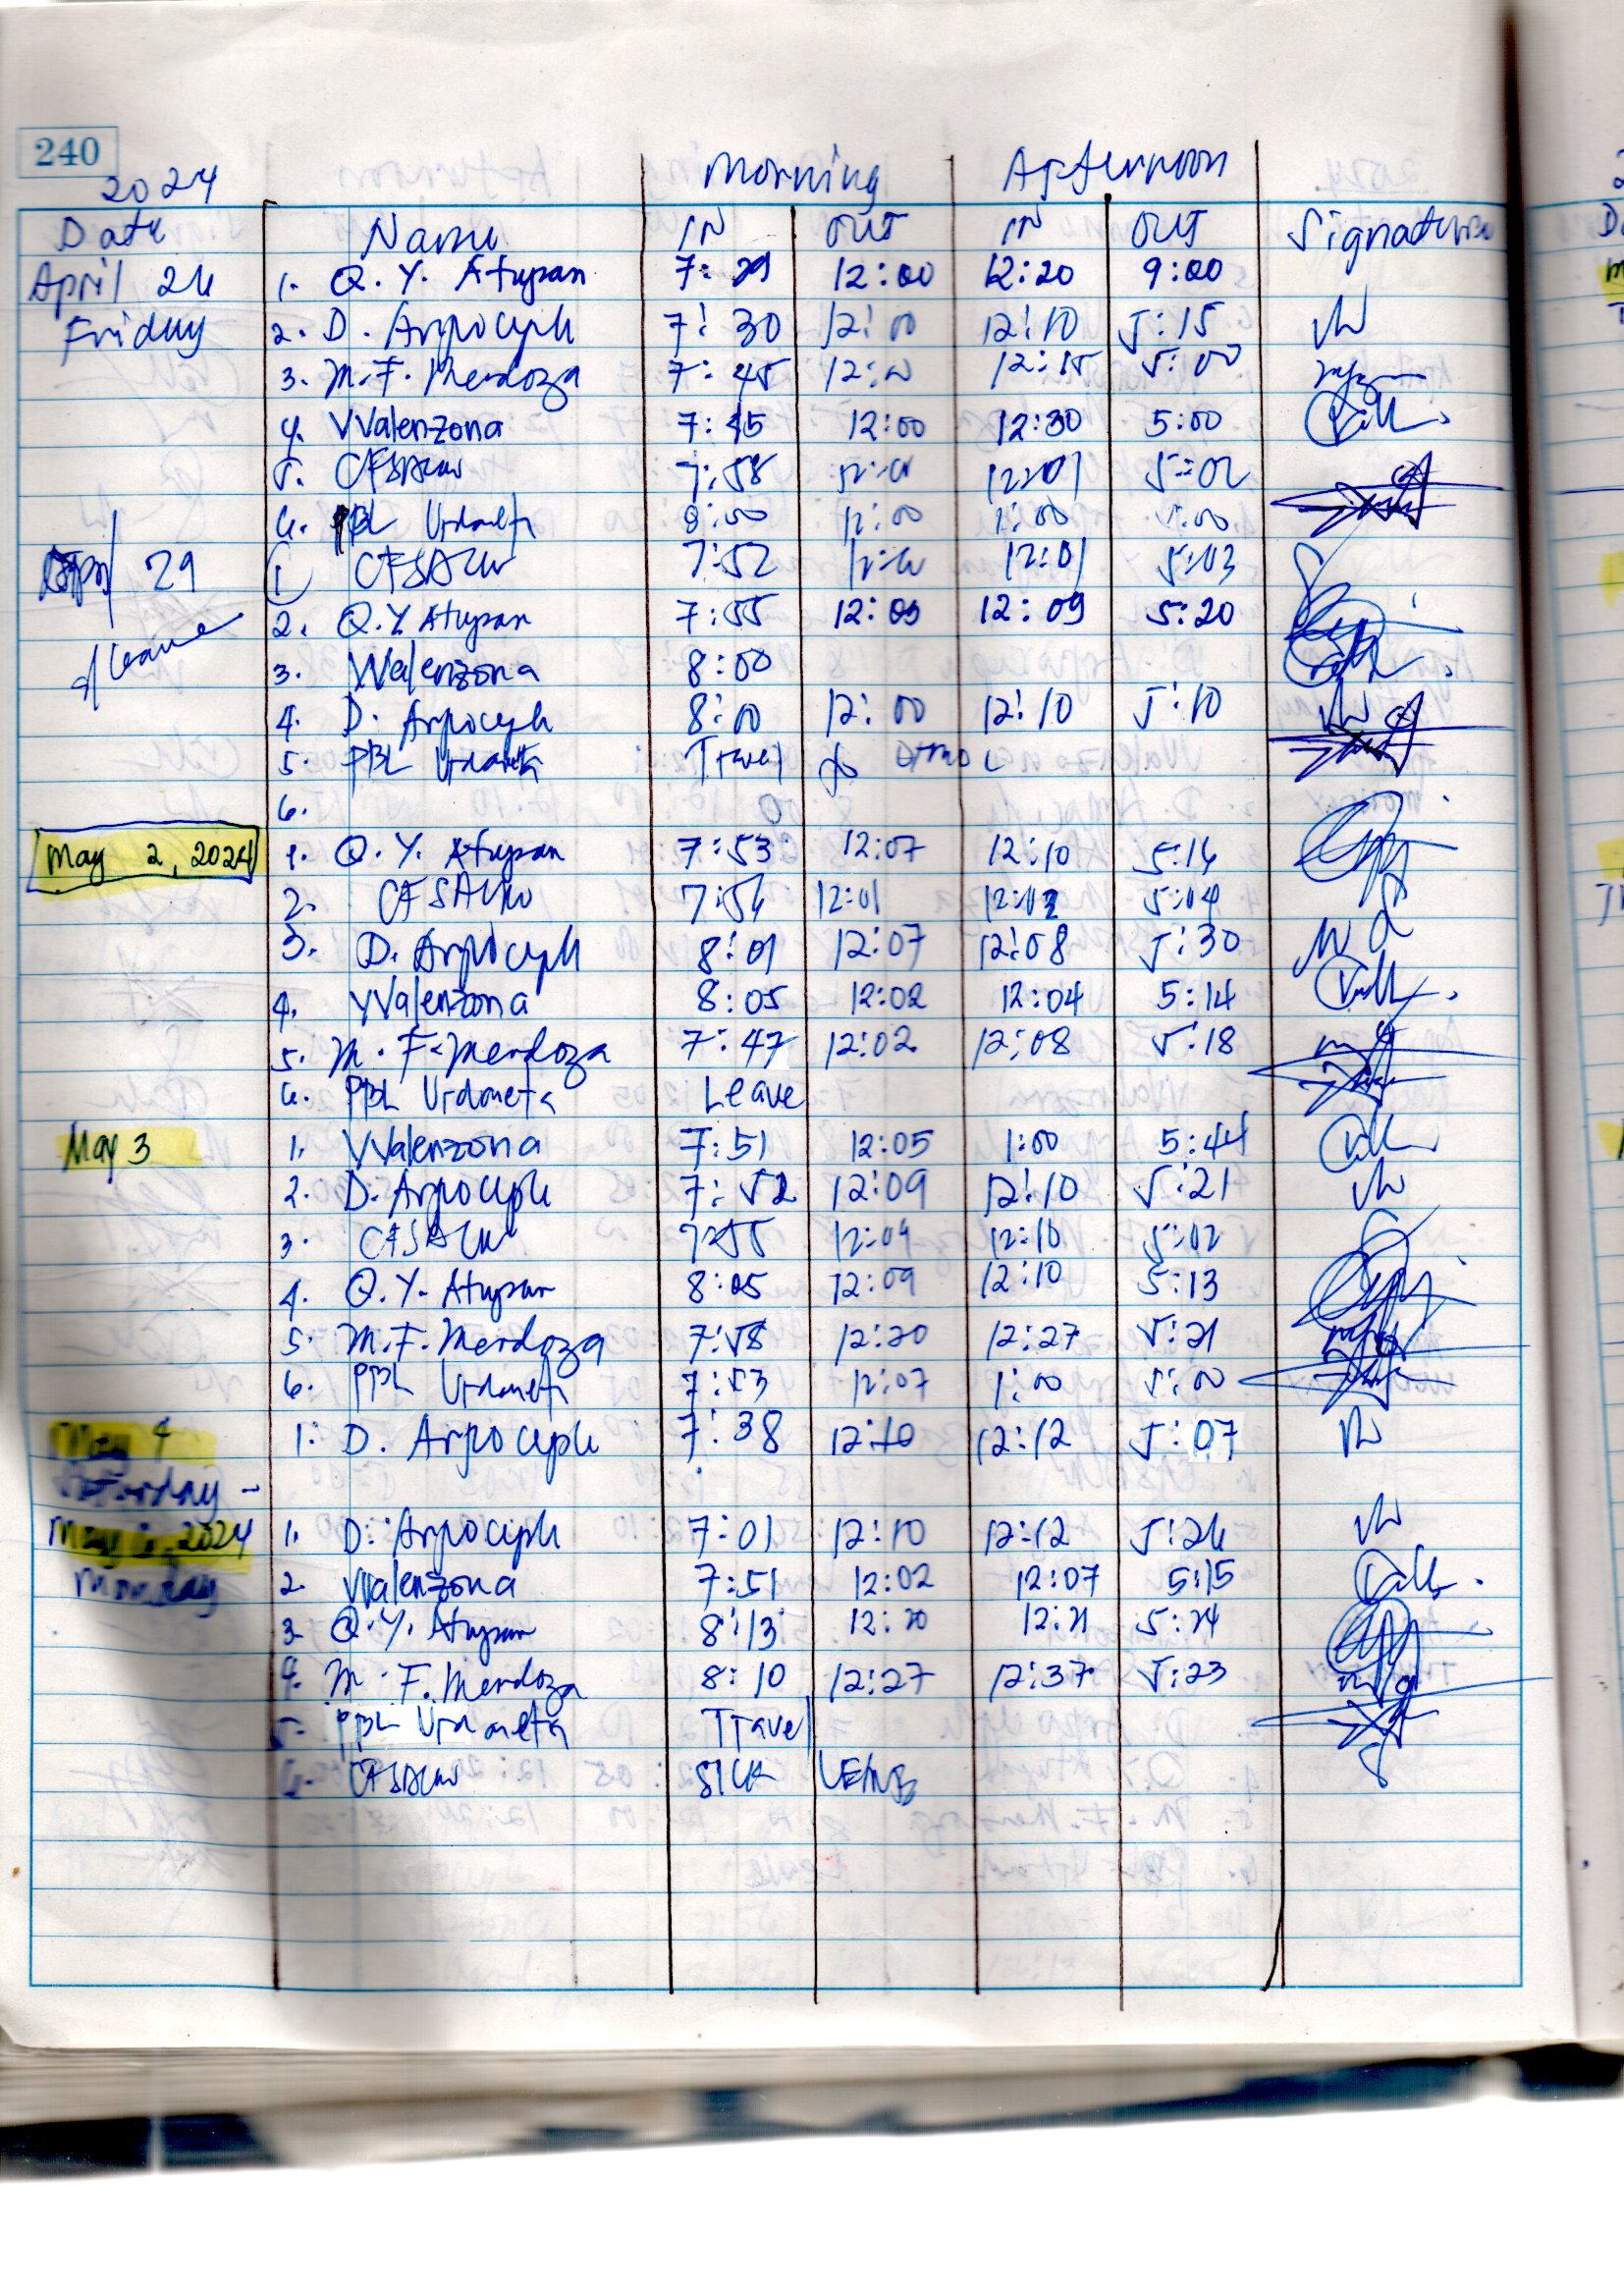 240
2024 Morning Afternoon
Date Name IN OUT IN OUT Signature
April 26 1. Q. Y. Atupan 7:29 12:00 12:20 9:00
Friday 2. D. 7:30 12:00 12:10 5:15
3. M. F. Mendoza 7:45 12:00 12:15 5:00
4. VValenzona 7:45 12:00 12:30 5:00
5. 7:58 12:01 5:02
6. PBL Urdaneta 8:00 12:00 1:00 5:00
April 29 1 7:52 12:01 5:03
2. Q.Y. Atupan 7:55 12:09 5:20
leave
3. VValenzona 8:00
4. D. 8:00 12:00 12:10 5:10
5. PBL Urdaneta Travel to Ormoc
6.
May 2, 2024 1. Q. Y. Atupan 7:53 12:07 12:10 5:16
2. 12:01 5:04
3. D. 8:01 12:07 12:08 5:30
4. VValenzona 8:05 12:02 12:04 5:14
5. M. F. Mendoza 7:47 12:02 12:08 5:18
6. PBL Urdaneta Leave
May 3 1. VValenzona 7:51 12:05 1:00 5:44
2. D. 7:52 12:09 12:10 5:21
3. 7:55 12:09 12:10 5:02
4. Q. Y. Atupan 8:05 12:09 12:10 5:13
5. M. F. Mendoza 7:58 12:20 12:27 5:21
6. PBL Urdaneta 7:53 12:07 1:00 5:00
May 4 1. D. 7:38 12:10 12:12 5:07
Saturday -
May 6, 2024 1. D. 7:01 12:10 12:12 5:26
Monday 2. VValenzona 7:51 12:02 12:07 5:15
3. Q. Y. Atupan 8:13 12:20 12:21 5:24
4. M. F. Mendoza 8:10 12:27 12:37 5:23
5. PBL Urdaneta Travel
6. SICK LEAVE